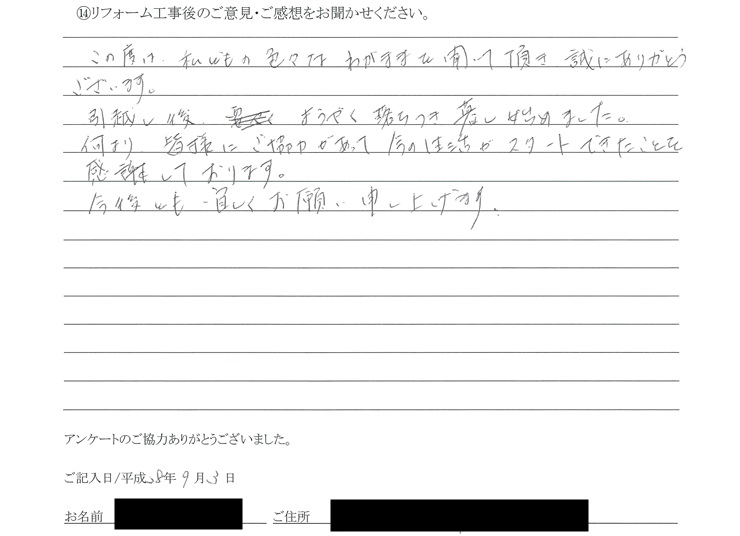 ⑭リフォーム工事後のご意見・ご感想をお聞かせください。
この度は、私どもの色々なわがままを聞いて頂き誠にありがとう
ございます。
引越し後、ようやく落ちつき暮し始めました。
何より、皆様にご協力があって今の生活がスタートできたことを
感謝しております。
今後とも宜しくお願い申し上げます。
アンケートのご協力ありがとうございました。
ご記入日/平成28年9月3日
お名前
ご住所